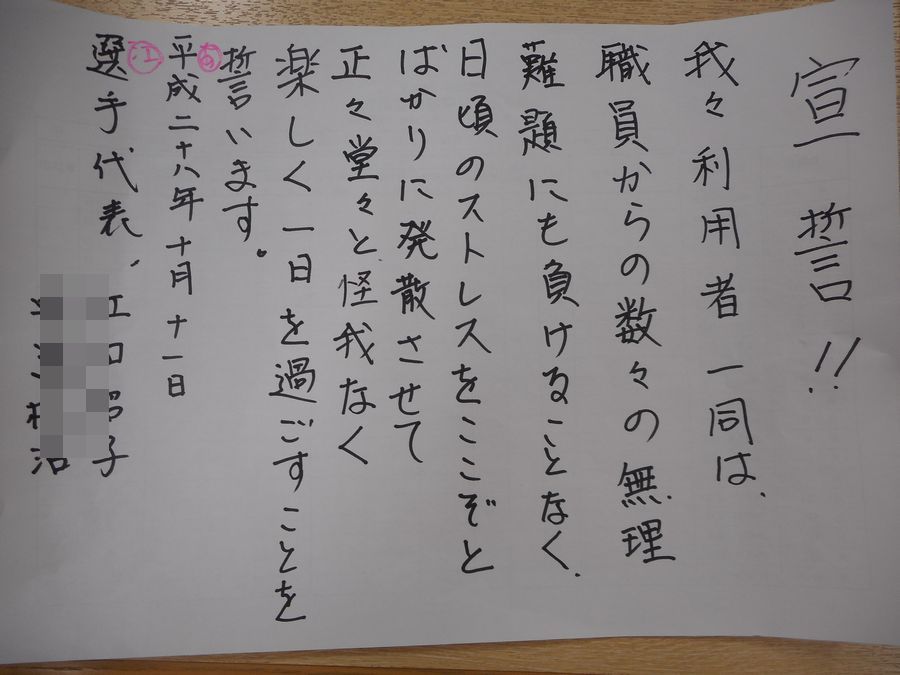 宣誓!!
我々利用者一同は、
職員からの数々の無理
難題にも負けることなく、
日頃のストレスをここぞと
ばかりに発散させて
正々堂々と、怪我なく
楽しく一日を過ごすことを
誓います。
平成二十八年十月十一日
選手代表、
子
治
江